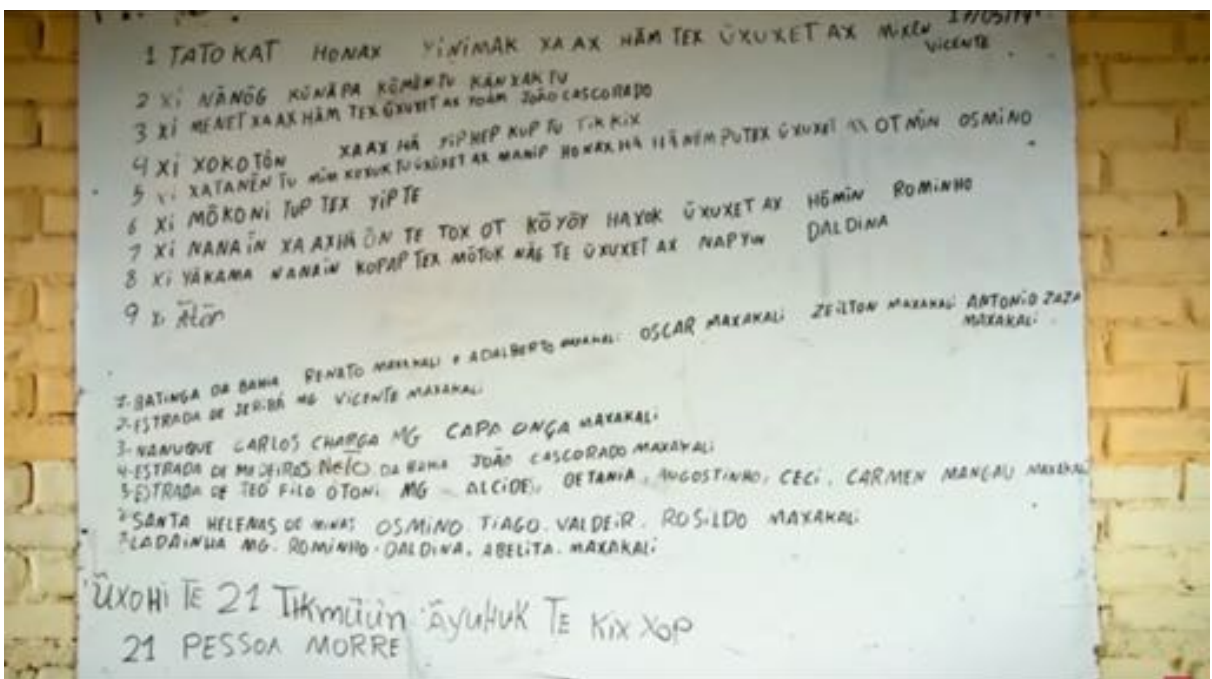 17/05/19
1 TATOKAT HONAX YINIMAK XAAX HÃM TEX ŨXUXET AX MIXEN
VICENTE
2 Xi NÃNÕG KŨNÃPA KÕMẼNTU KÃNXAKTU
3 Xi MENET XAAX HÃM TEX ŨXUXET AX YOÃM JOÃO CASCORADO
4 Xi XOKOTÕN XAAX HÃ YIPHEP KUP TU TiKKiX
5 Xi XATANẼN TU MĩM KOXUK TU ŨXUXET AX MANIP HONAX HÃ HÃNEM PUTEX ŨXUXET AX OT MĩN OSMINO
6 Xi MÕKONi TUP TEX YiPTE
7 Xi NANAĩN XAAXHÃ ÕN TE TOX OT KÕYÕY HAYOK ŨXUXET AX HÕMiN ROMiNHO
8 Xi YÃKAMA NANAĩN KOPAP TEX MÕTOK NÃG TE ŨXUXET AX NAPYIN DALDiNA
9 Xi ÃTÕN
1-BATiNGA DA BAHIA RENATO MAXAKALi e ADALBERTO MAXAKALi OSCAR MAXAKALi ZEiLTON MAXAKALi ANTONiO ZAZA
MAXAKALi
2-ESTRADA DE JERiBÁ MG ViCENTE MAXAKALi
3-NANUQUE CARLOS CHARGA MG CAPA ONÇA MAXAKALi
4-ESTRADA DE MEDEiROS NETO DA BAHIA JOÃO CASCORADO MAXAKALi
5-ESTRADA DE TEÓFiLO OTONi MG - ALCiDES, DETANiA, AUGOSTiNHO, CECi, CARMEN MANGAU MAXAKALi
SANTA HELENAS DE MiNAS OSMiNO. TiAGO. VALDEiR. ROSiLDO MAXAKALi
LADAiNHA MG. ROMiNHO. DALDiNA. ABELiTA. MAXAKALi
ŨXOHi TE 21 TiKMŨ'ŨN ÃYUHUK TE KiX XOP
21 PESSOA MORRE